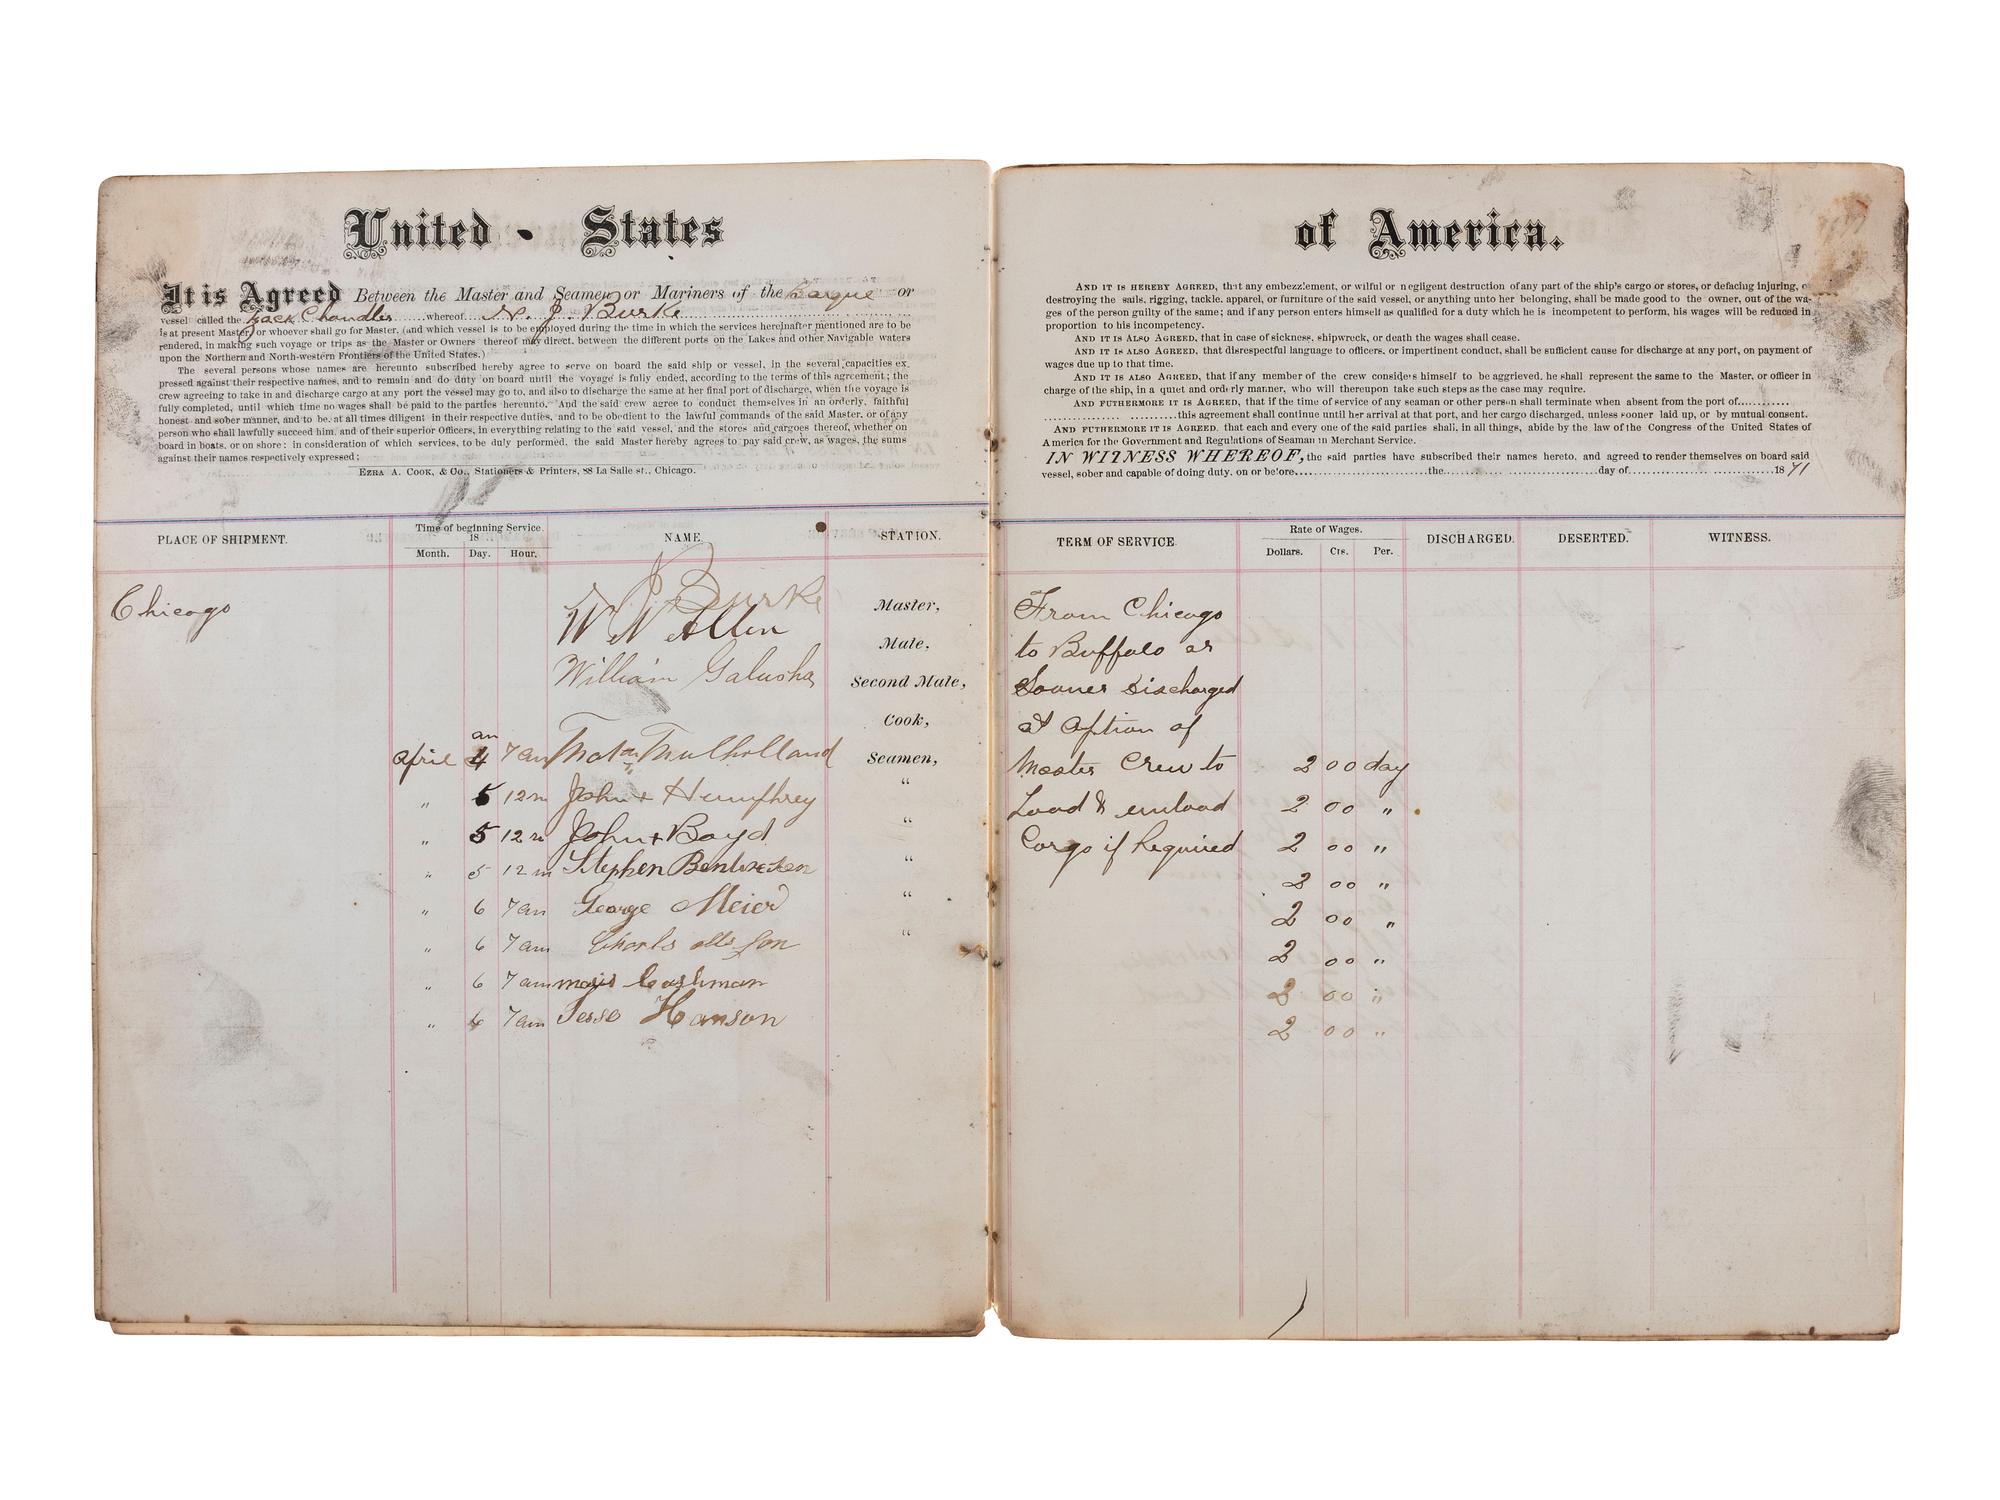 United - States
It is Agreed Between the Master and Seamen or Mariners of the Barque or
vessel called the Zack Chandler whereof N. J. Burke
is at present Master, or whoever shall go for Master. (and which vessel is to be employed during the time in which the services hereinafter mentioned are to be
rendered, in making such voyage or trips as the Master or Owners thereof may direct, between the different ports on the Lakes and other Navigable waters
upon the Northern and North-western Frontiers of the United States.)
The several persons whose names are hereunto subscribed hereby agree to serve on board the said ship or vessel, in the several capacities ex
pressed against their respective names, and to remain and do duty on board until the voyage is fully ended, according to the terms of this agreement; the
crew agreeing to take in and discharge cargo at any port the vessel may go to, and also to discharge the same at her final port of discharge, when the voyage is
fully completed, until which time no wages shall be paid to the parties hereunto. And the said crew agree to conduct themselves in an orderly, faithful
honest and sober manner, and to be, at all times diligent in their respective duties, and to be obedient to the lawful commands of the said Master, or of any
person who shall lawfully succeed him, and of their superior Officers, in everything relating to the said vessel, and the stores and cargoes thereof, whether on
board in boats, or on shore: in consideration of which services, to be duly performed, the said Master hereby agrees to pay said crew, as wages, the sums
against their names respectively expressed;
EZRA A. COOK, & Co., Stationers & Printers, 88 La Salle st., Chicago.
PLACE OF SHIPMENT. Time of beginning Service. 18 NAME. STATION.
Month. Day. Hour.
Chicago J Burke Master,
W N Allen Mate,
William Galusha Second Mate,
Cook,
an
April 4 7 am Mulholland Seamen,
" 5 12 m John + Humphrey "
" 5 12 m John + Boyd "
" 5 12 m Stephen "
" 6 7 am George Meier "
" 6 7 am Charls "
" 6 7 am Cashman
" 6 7 am Jesse Hanson
of America.
AND IT IS HEREBY AGREED, that any embezzlement, or wilful or negligent destruction of any part of the ship's cargo or stores, or defacing injuring, o
destroying the sails, rigging, tackle, apparel, or furniture of the said vessel, or anything unto her belonging, shall be made good to the owner, out of the wa-
ges of the person guilty of the same; and if any person enters himself as qualified for a duty which he is incompetent to perform, his wages will be reduced in
proportion to his incompetency.
AND IT IS ALSO AGREED, that in case of sickness, shipwreck, or death the wages shall cease.
AND IT IS ALSO AGREED, that disrespectful language to officers, or impertinent conduct, shall be sufficient cause for discharge at any port, on payment of
wages due up to that time.
AND IT IS ALSO AGREED, that if any member of the crew considers himself to be aggrieved, he shall represent the same to the Master, or officer in
charge of the ship, in a quiet and orderly manner, who will thereupon take such steps as the case may require.
AND FUTHERMORE IT IS AGREED, that if the time of service of any seaman or other person shall terminate when absent from the port of
this agreement shall continue until her arrival at that port, and her cargo discharged, unless sooner laid up, or by mutual consent.
AND FUTHERMORE IT IS AGREED, that each and every one of the said parties shall, in all things, abide by the law of the Congress of the United States of
America for the Government and Regulations of Seaman in Merchant Service.
IN WITNESS WHEREOF, the said parties have subscribed their names hereto, and agreed to render themselves on board said
vessel, sober and capable of doing duty, on or before the day of 1871
TERM OF SERVICE. Rate of Wages. DISCHARGED. DESERTED. WITNESS.
Dollars. Cts. Per.
From Chicago
to Buffalo or
Sooner Discharged
at Option of
Master Crew to 2 00 day
Load & unload 2 00 "
Cargo if Required 2 00 "
2 00 "
2 00 "
2 00 "
2 00 "
2 00 "